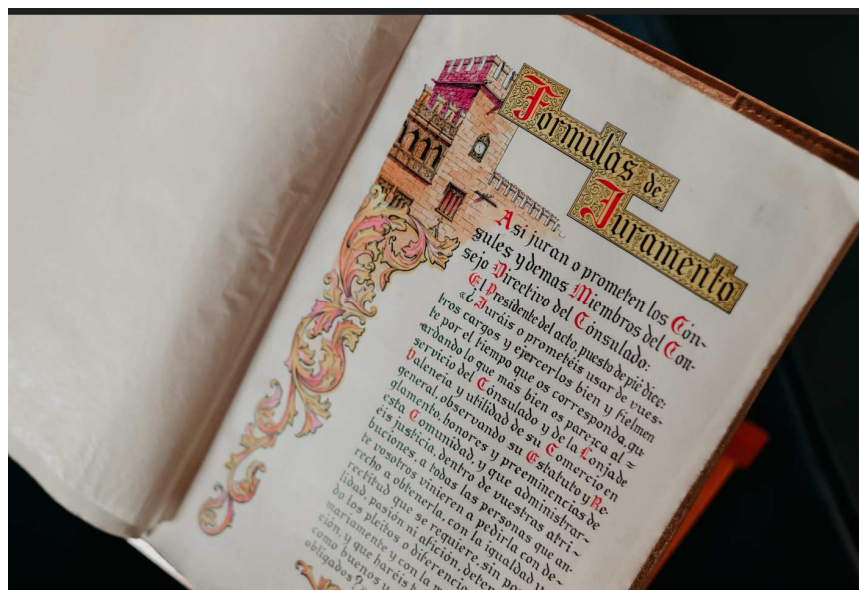 Fórmulas de
Juramento
Así juran o prometen los Cón-
sules y demas Miembros del Con-
sejo Directivo del Consulado:
El Presidente del acto, puesto de pié dice:
«¿Juráis o prometéis usar de vues-
tros cargos y ejercerlos bien y fielmen
te por el tiempo que os corresponda, gu
ardando lo que más bien os parezca al
servicio del Consulado y de la Lonja de
Valencia y utilidad de su Comercio en
general, observando su Estatuto y Re-
glamento, honores y preeminencias de
esta Comunidad, y que administrar-
éis justicia, dentro de vuestras atri-
buciones, a todas las personas que an-
te vosotros vinieren a pedirla con de-
recho a obtenerla, con la igualdad y
rectitud que se requiere, sin
lidad, pasión ni afición,
do los pleitos o diferencia
mariamente y con la
ción, y que haréis
como buenos y
obligados?